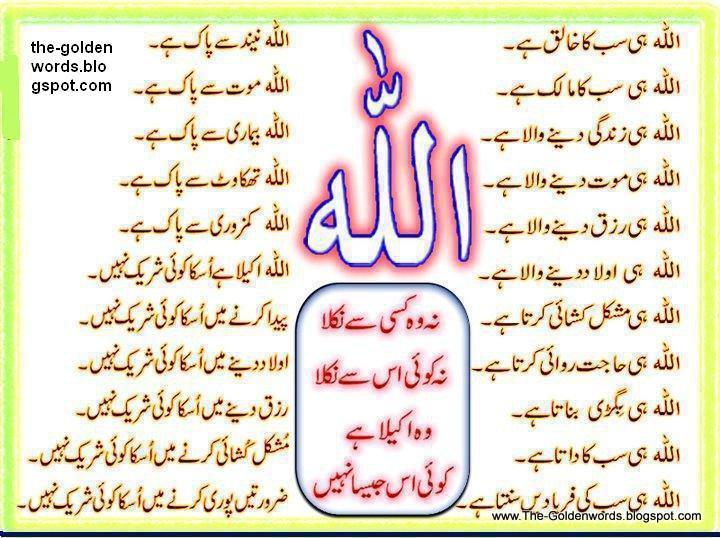 اللہ ہی سب کا خالق ہے۔
اللہ ہی سب کا مالک ہے۔
اللہ ہی زندگی دینے والا ہے۔
اللہ ہی موت دینے والا ہے۔
اللہ ہی رزق دینے والا ہے۔
اللہ ہی اولاد دینے والا ہے۔
اللہ ہی مشکل کشائی کرتا ہے۔
اللہ ہی حاجت روائی کرتا ہے۔
اللہ ہی بِگڑی بناتا ہے۔
اللہ ہی سب کا داتا ہے۔
اللہ ہی سب کی فریادیں سنتا ہے۔
اللہ
نہ وہ کسی سے نکلا
نہ کوئی اس سے نکلا
وہ اکیلا ہے
کوئی اس جیسا نہیں
اللہ نیند سے پاک ہے۔
اللہ موت سے پاک ہے۔
اللہ بیماری سے پاک ہے۔
اللہ تھکاوٹ سے پاک ہے۔
اللہ کمزوری سے پاک ہے۔
اللہ اکیلا ہے اُسکا کوئی شریک نہیں۔
پیدا کرنے میں اُسکا کوئی شریک نہیں۔
اولاد دینے میں اُسکا کوئی شریک نہیں۔
رزق دینے میں اُسکا کوئی شریک نہیں۔
مُشکل کُشائی کرنے میں اُسکا کوئی شریک نہیں۔
ضرورتیں پوری کرنے میں اُسکا کوئی شریک نہیں۔
the-golden
words.blo
gspot.com
www.The-Goldenwords.blogspot.com